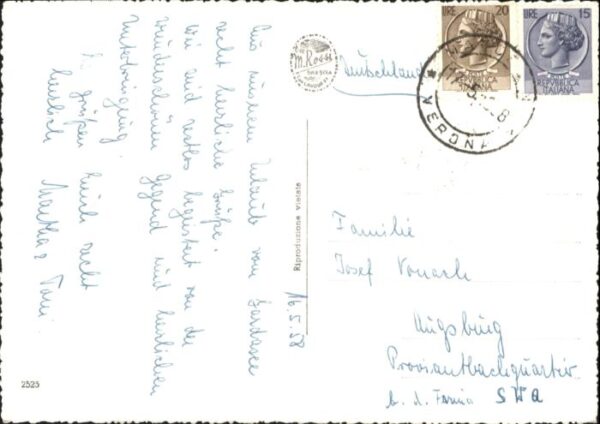 Aus unserem Urlaub vom Gardasee
recht herzliche Grüße!
Wir sind restlos begeistert von der
wunderschönen Gegend und herrlichen
Unterbringung.
Es grüßen Euch recht
herzlich Martha & Toni
16.5.58
2525
Riproduzione vietata
M. Rossi
Deutschland
LIRE 20
REPUBBLICA
ITALIANA
LIRE 15
REPUBBLICA
ITALIANA
VERONA
Familie
Josef Vonach
Augsburg
Proviantbachquartier
b. d. Farma SWA